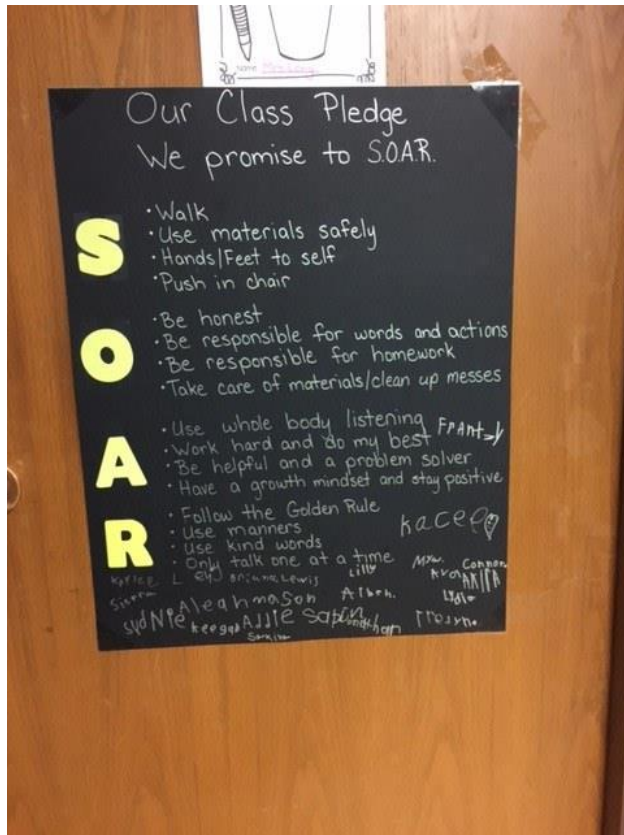 Name
Our Class Pledge
We promise to S.O.A.R.
S
• Walk
• Use materials safely
• Hands/Feet to self
• Push in chair
O
• Be honest
• Be responsible for words and actions
• Be responsible for homework
• Take care of materials/clean up messes
A
• Use whole body listening
FRAnt
• Work hard and do my best
• Be helpful and a problem solver
• Have a growth mindset and stay positive
R
• Follow the Golden Rule
• Use manners
• Use kind words
• Only talk one at a time
Kacee
Connor
Briana Lewis
Lilly
Ava
AKIRA
Sierra
Lydia
Aleah mason
SydNie
Keegan
Allie